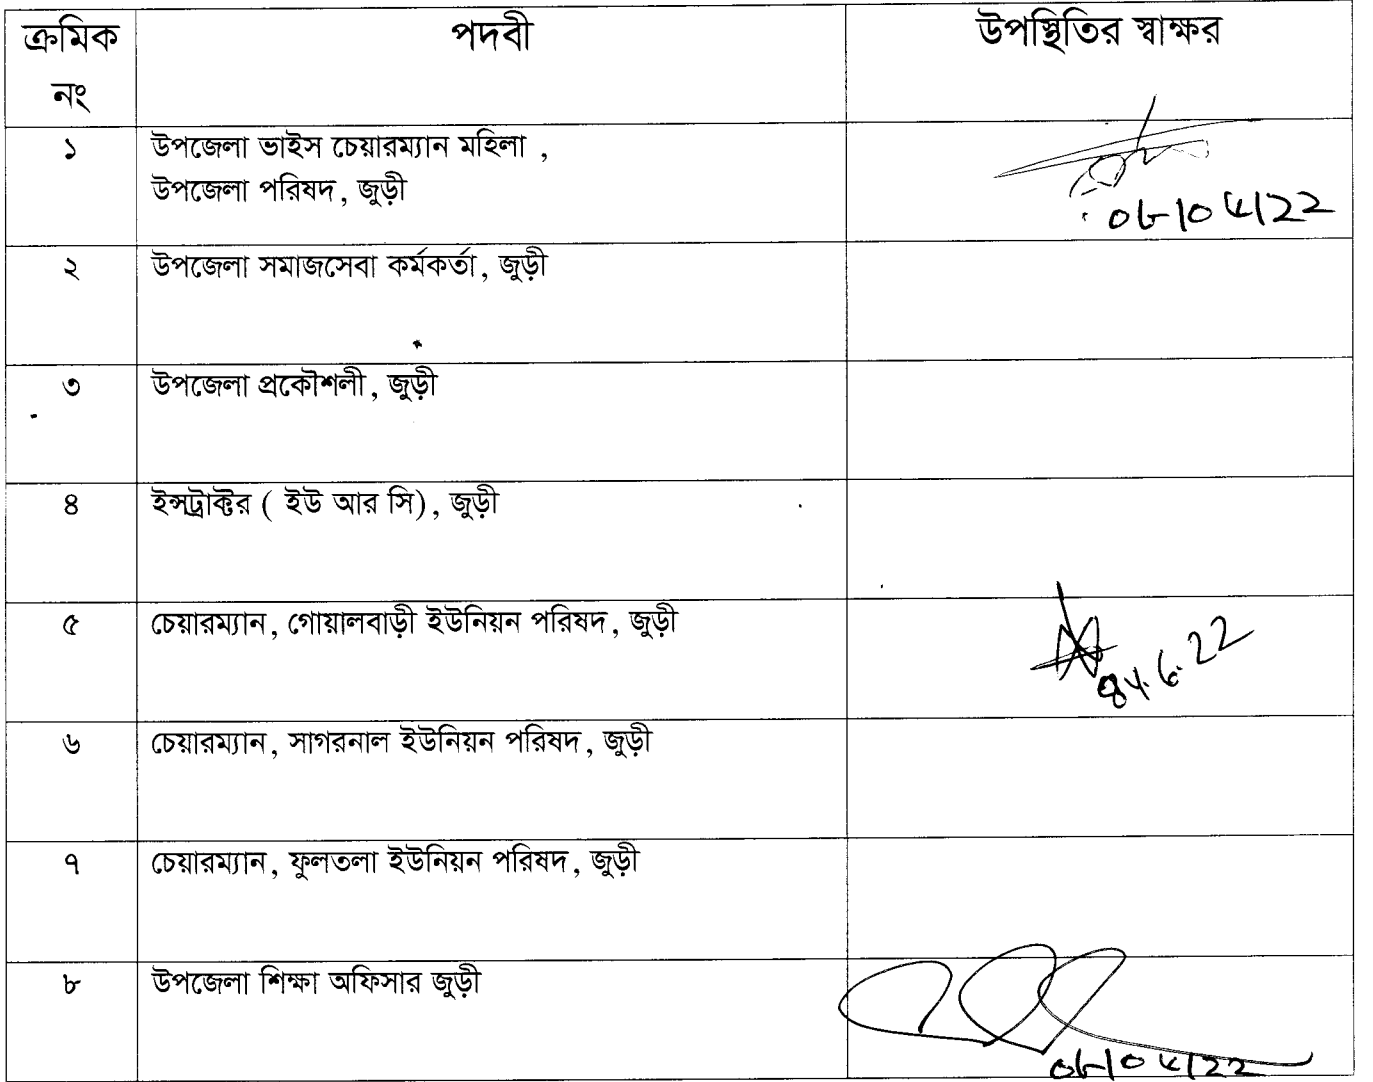 ক্রমিক নং পদবী উপস্থিতির স্বাক্ষর
১ উপজেলা ভাইস চেয়ারম্যান মহিলা ,
উপজেলা পরিষদ , জুড়ী
২ উপজেলা সমাজসেবা কর্মকর্তা , জুড়ী
৩ উপজেলা প্রকৌশলী , জুড়ী
৪ ইন্সট্রাক্টর ( ইউ আর সি) , জুড়ী
৫ চেয়ারম্যান , গোয়ালবাড়ী ইউনিয়ন পরিষদ , জুড়ী
৬ চেয়ারম্যান , সাগরনাল ইউনিয়ন পরিষদ , জুড়ী
৭ চেয়ারম্যান , ফুলতলা ইউনিয়ন পরিষদ , জুড়ী
৮ উপজেলা শিক্ষা অফিসার জুড়ী